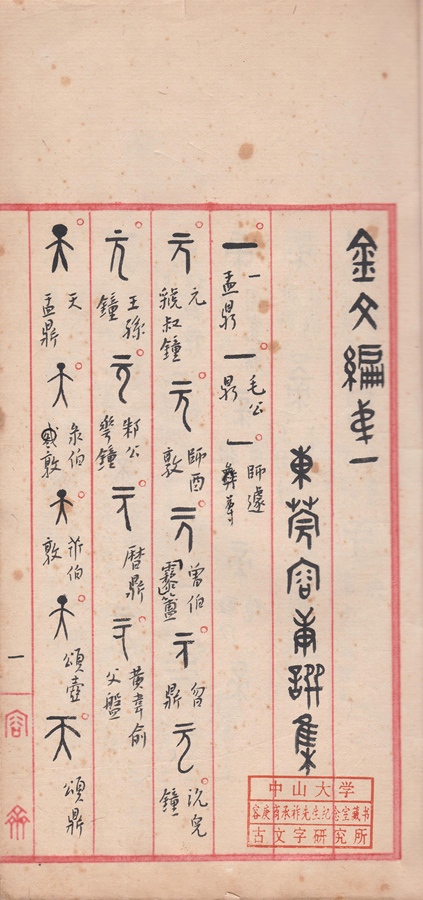 金文編弟一
東莞容庚譔集
一 一 盂鼎 一 毛公鼎 一 師遽彝
元 元 虢叔鐘 元 師酉敦 元 曾伯簠 元 曶鼎 元 沇兒鐘
元 王孫鐘 元 邾公華鐘 元 曆鼎 元 黃韋俞父盤
天 天 盂鼎 天 彔伯敦 天 伯敦 天 頌壺 天 頌鼎
一
容
中山大学
容庚商承祚先生纪念室藏书
古文字研究所